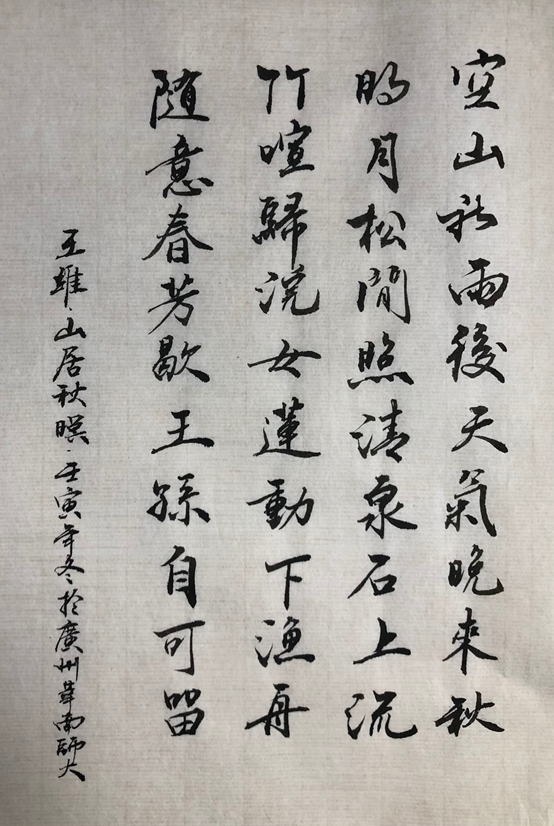 空山新雨後天氣晚來秋
明月松間照清泉石上流
竹喧歸浣女蓮動下漁舟
随意春芳歇王孫自可留
王維·山居秋暝·壬寅年冬於廣州華南師大